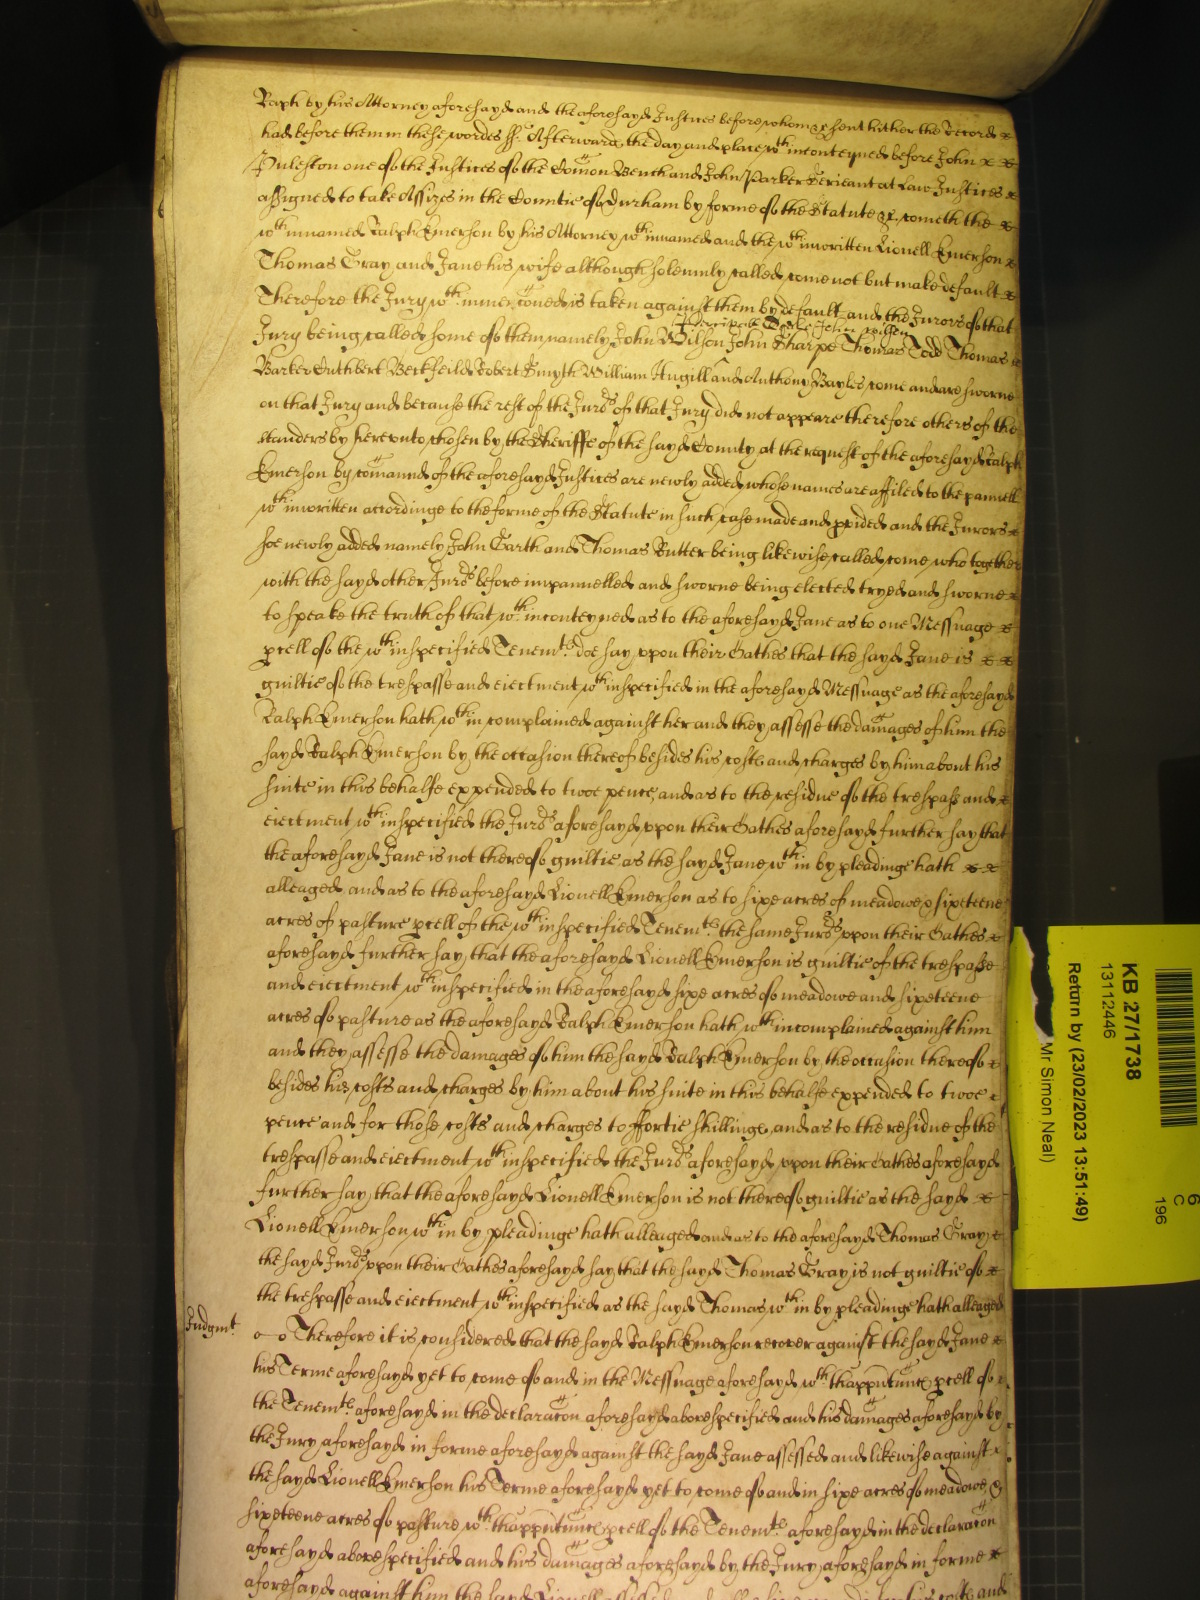 Raph by his Attorney aforesayd and the aforesayd Justices before whom &c sent hither the Record
had before them in these wordes ss. Afterwards the day and place wthin conteyned before John
Puleston one of the Justices of the Comon Bench and John Parker Serieant at Law Justices
assigned to take Assizes in the Countie of Durham by forme of the Statute &c. cometh the
wthinnamed Ralph Emerson by his Attorney wthinnamed and the wthinwritten Lionell Emerson
Thomas Gray and Jane his wife although solemnly called come not but make default
Therefore the Jury wthin menconed is taken against them by default and the Jurors of that
John Wilson
Jury being called some of them namely John Wilson John Sharpe Thomas Todd Thomas
Barker Cuthbert Beckfeild Robert Smyth William Hugill and Anthony Bayles come and are sworne
on that Jury and because the rest of the Jurors of that Jury did not appeare therefore others of the
standers by hereunto chosen by the Sheriffe of the sayd County at the request of the aforesayd Ralph
Emerson by comannd of the aforesayd Justices are newly added whose names are affiled to the pannell
wthinwritten accordinge to the forme of the Statute in such case made and pvided and the Jurors
soe newly added namely John Garth and Thomas Rutter being likewise called come who together
with the sayd other Jurors before impannelled and sworne being elected tryed and sworne
to speake the truth of that wthin conteyned as to the aforesayd Jane as to one Messuage
pcell of the wthin specified Tenemts doe say upon their Oathes that the sayd Jane is
guiltie of the trespasse and eiectment wthin specified in the aforesayd Messuage as the aforesayd
Ralph Emerson hath wthin complained against her and they assesse the damages of him the
sayd Ralph Emerson by the occasion thereof besides his costs and charges by him about his
suite in this behalfe expended to twoe pence, and as to the residue of the trespass and
eiectment wthin specified the Jurors aforesayd upon their Oathes aforesayd further say that
the aforesayd Jane is not thereof guiltie as the sayd Jane wthin by pleadinge hath
alleaged and as to the aforesayd Lionell Emerson as to sixe acres of meadowe & sixeteene
acres of pasture pcell of the wthin specified Tenemts the same Jurors upon their Oathes
aforesayd further say that the aforesayd Lionell Emerson is guiltie of the trespasse
and eiectment wthin specified in the aforesayd sixe acres of meadowe and sixeteene
acres of pasture as the aforesayd Ralph Emerson hath wthin complained against him
and they assesse the damages of him the sayd Ralph Emerson by the occasion thereof
besides his costs and charges by him about his suite in this behalfe expended to twoe
pence and for those costs and charges to ffortie shillings, and as to the residue of the
trespasse and eiectment wthin specified the Jurors aforesayd upon their Oathes aforesayd
further say that the aforesayd Lionell Emerson is not thereof guiltie as the sayd
Lionell Emerson wthin by pleadinge hath alleaged and as to the aforesayd Thomas Gray
the sayd Jurors upon their Oathes aforesayd say that the sayd Thomas Gray is not guiltie of
the trespasse and eiectment wthin specified as the sayd Thomas wthin by pleadinge hath alleaged
Judgmt. Therefore it is considered that the sayd Ralph Emerson recover against the sayd Jane
his Terme aforesayd yet to come of and in the Messuage aforesayd wth thappurtunces pcell of
the Tenemts aforesayd in the declaracon aforesayd above specified and his damages aforesayd by
the Jury aforesayd in forme aforesayd against the sayd Jane assessed and likewise against
the sayd Lionell Emerson his Terme aforesayd yet to come of and in sixe acres of meadowe &
sixeteene acres of pasture wth thappurtunces pcell of the Tenemts aforesayd in the declaracon
aforesayd above specified and his damages aforesayd by the Jury aforesayd in forme
aforesayd against him the sayd Lionell assessed costs and
KB 27/1738
13112446
Return by (23/02/2023 13:51:49)
Mr Simon Neal)
6
C
196